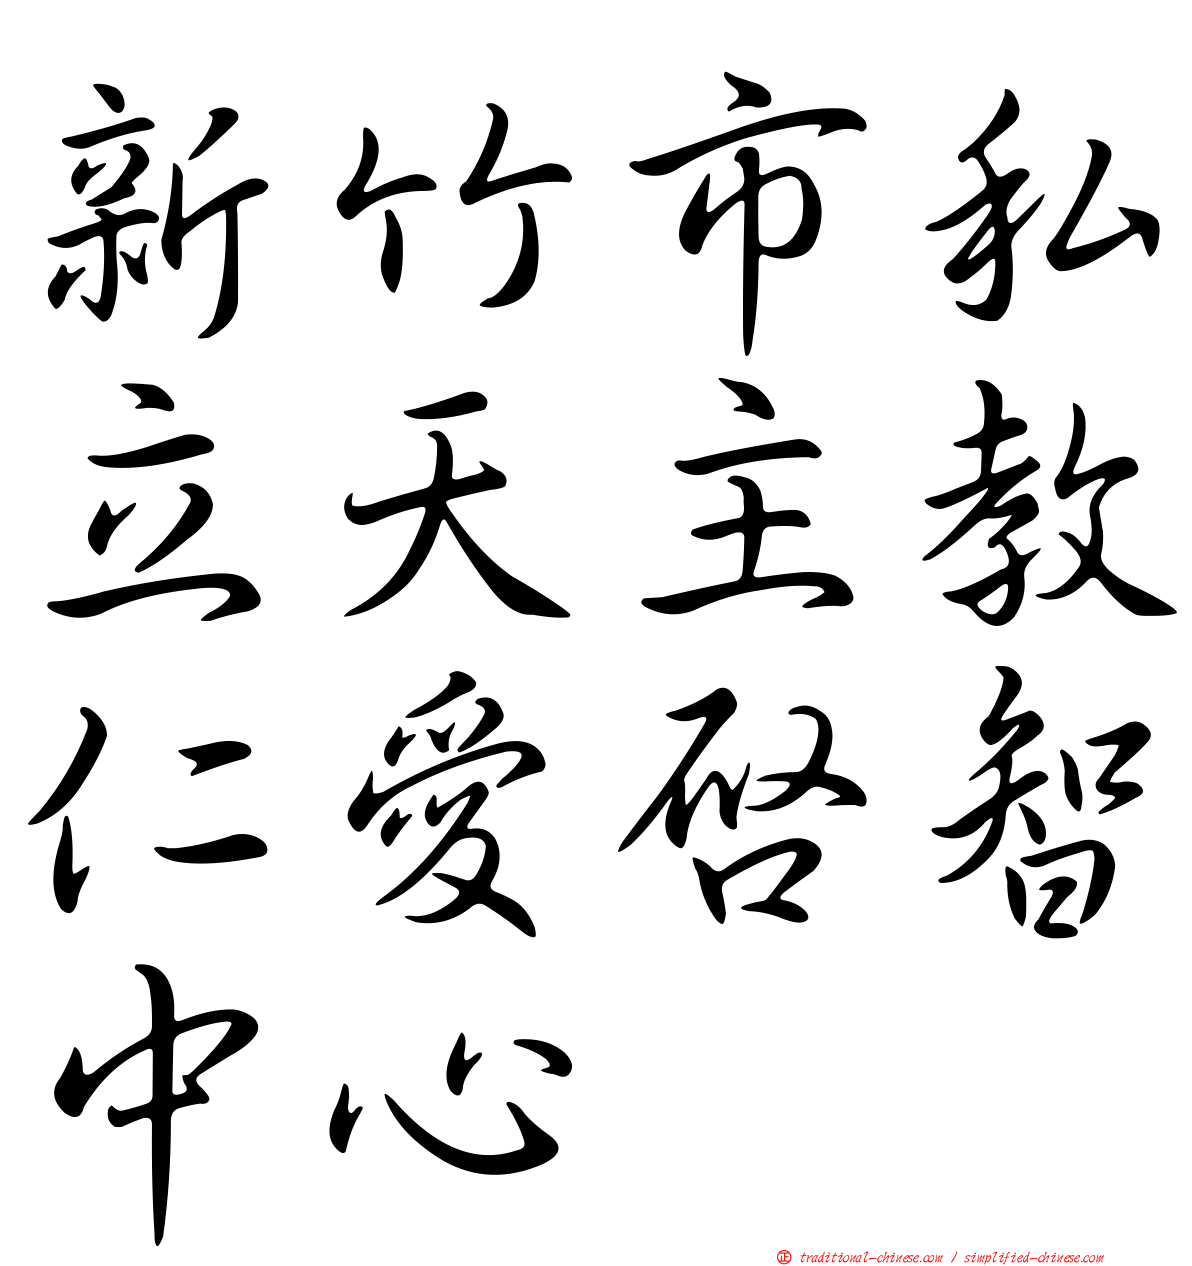 新竹市私
立天主教
仁愛啓智
中心
正 traditional-chinese.com / simplified-chinese.com